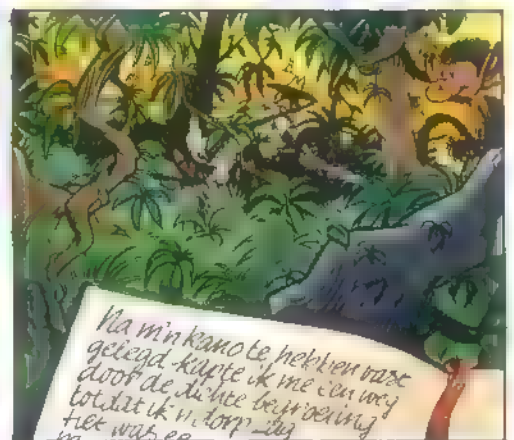 Na m'n kano te hebben vast
gelegd kapte ik me een weg
door de dichte begroeiing
totdat ik 'n dorp zag
Het was ee